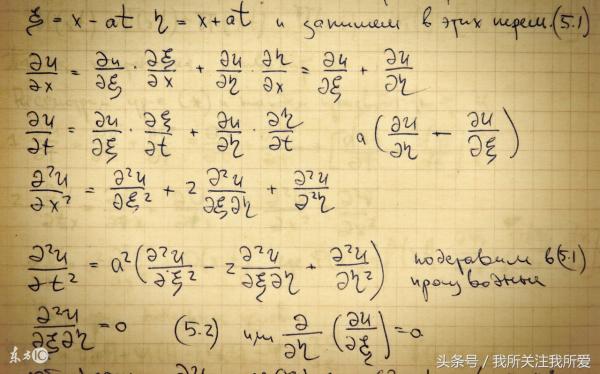 ξ = x - at  η = x + at  и запишем в этих перем. (5.1)
∂u/∂x = ∂u/∂ξ · ∂ξ/∂x + ∂u/∂η · ∂η/∂x = ∂u/∂ξ + ∂u/∂η
∂u/∂t = ∂u/∂ξ · ∂ξ/∂t + ∂u/∂η · ∂η/∂t  a(∂u/∂η - ∂u/∂ξ)
∂²u/∂x² = ∂²u/∂ξ² + 2 ∂²u/∂ξ∂η + ∂²u/∂²η
∂²u/∂t² = a²(∂²u/∂ξ² - 2 ∂²u/∂ξ∂η + ∂²u/∂η²)  подставим в (5.1)
производные
∂²u/∂ξ∂η = 0  (5.2)  или ∂/∂η (∂u/∂ξ) = 0
东方IC
头条号 / 我所关注我所爱